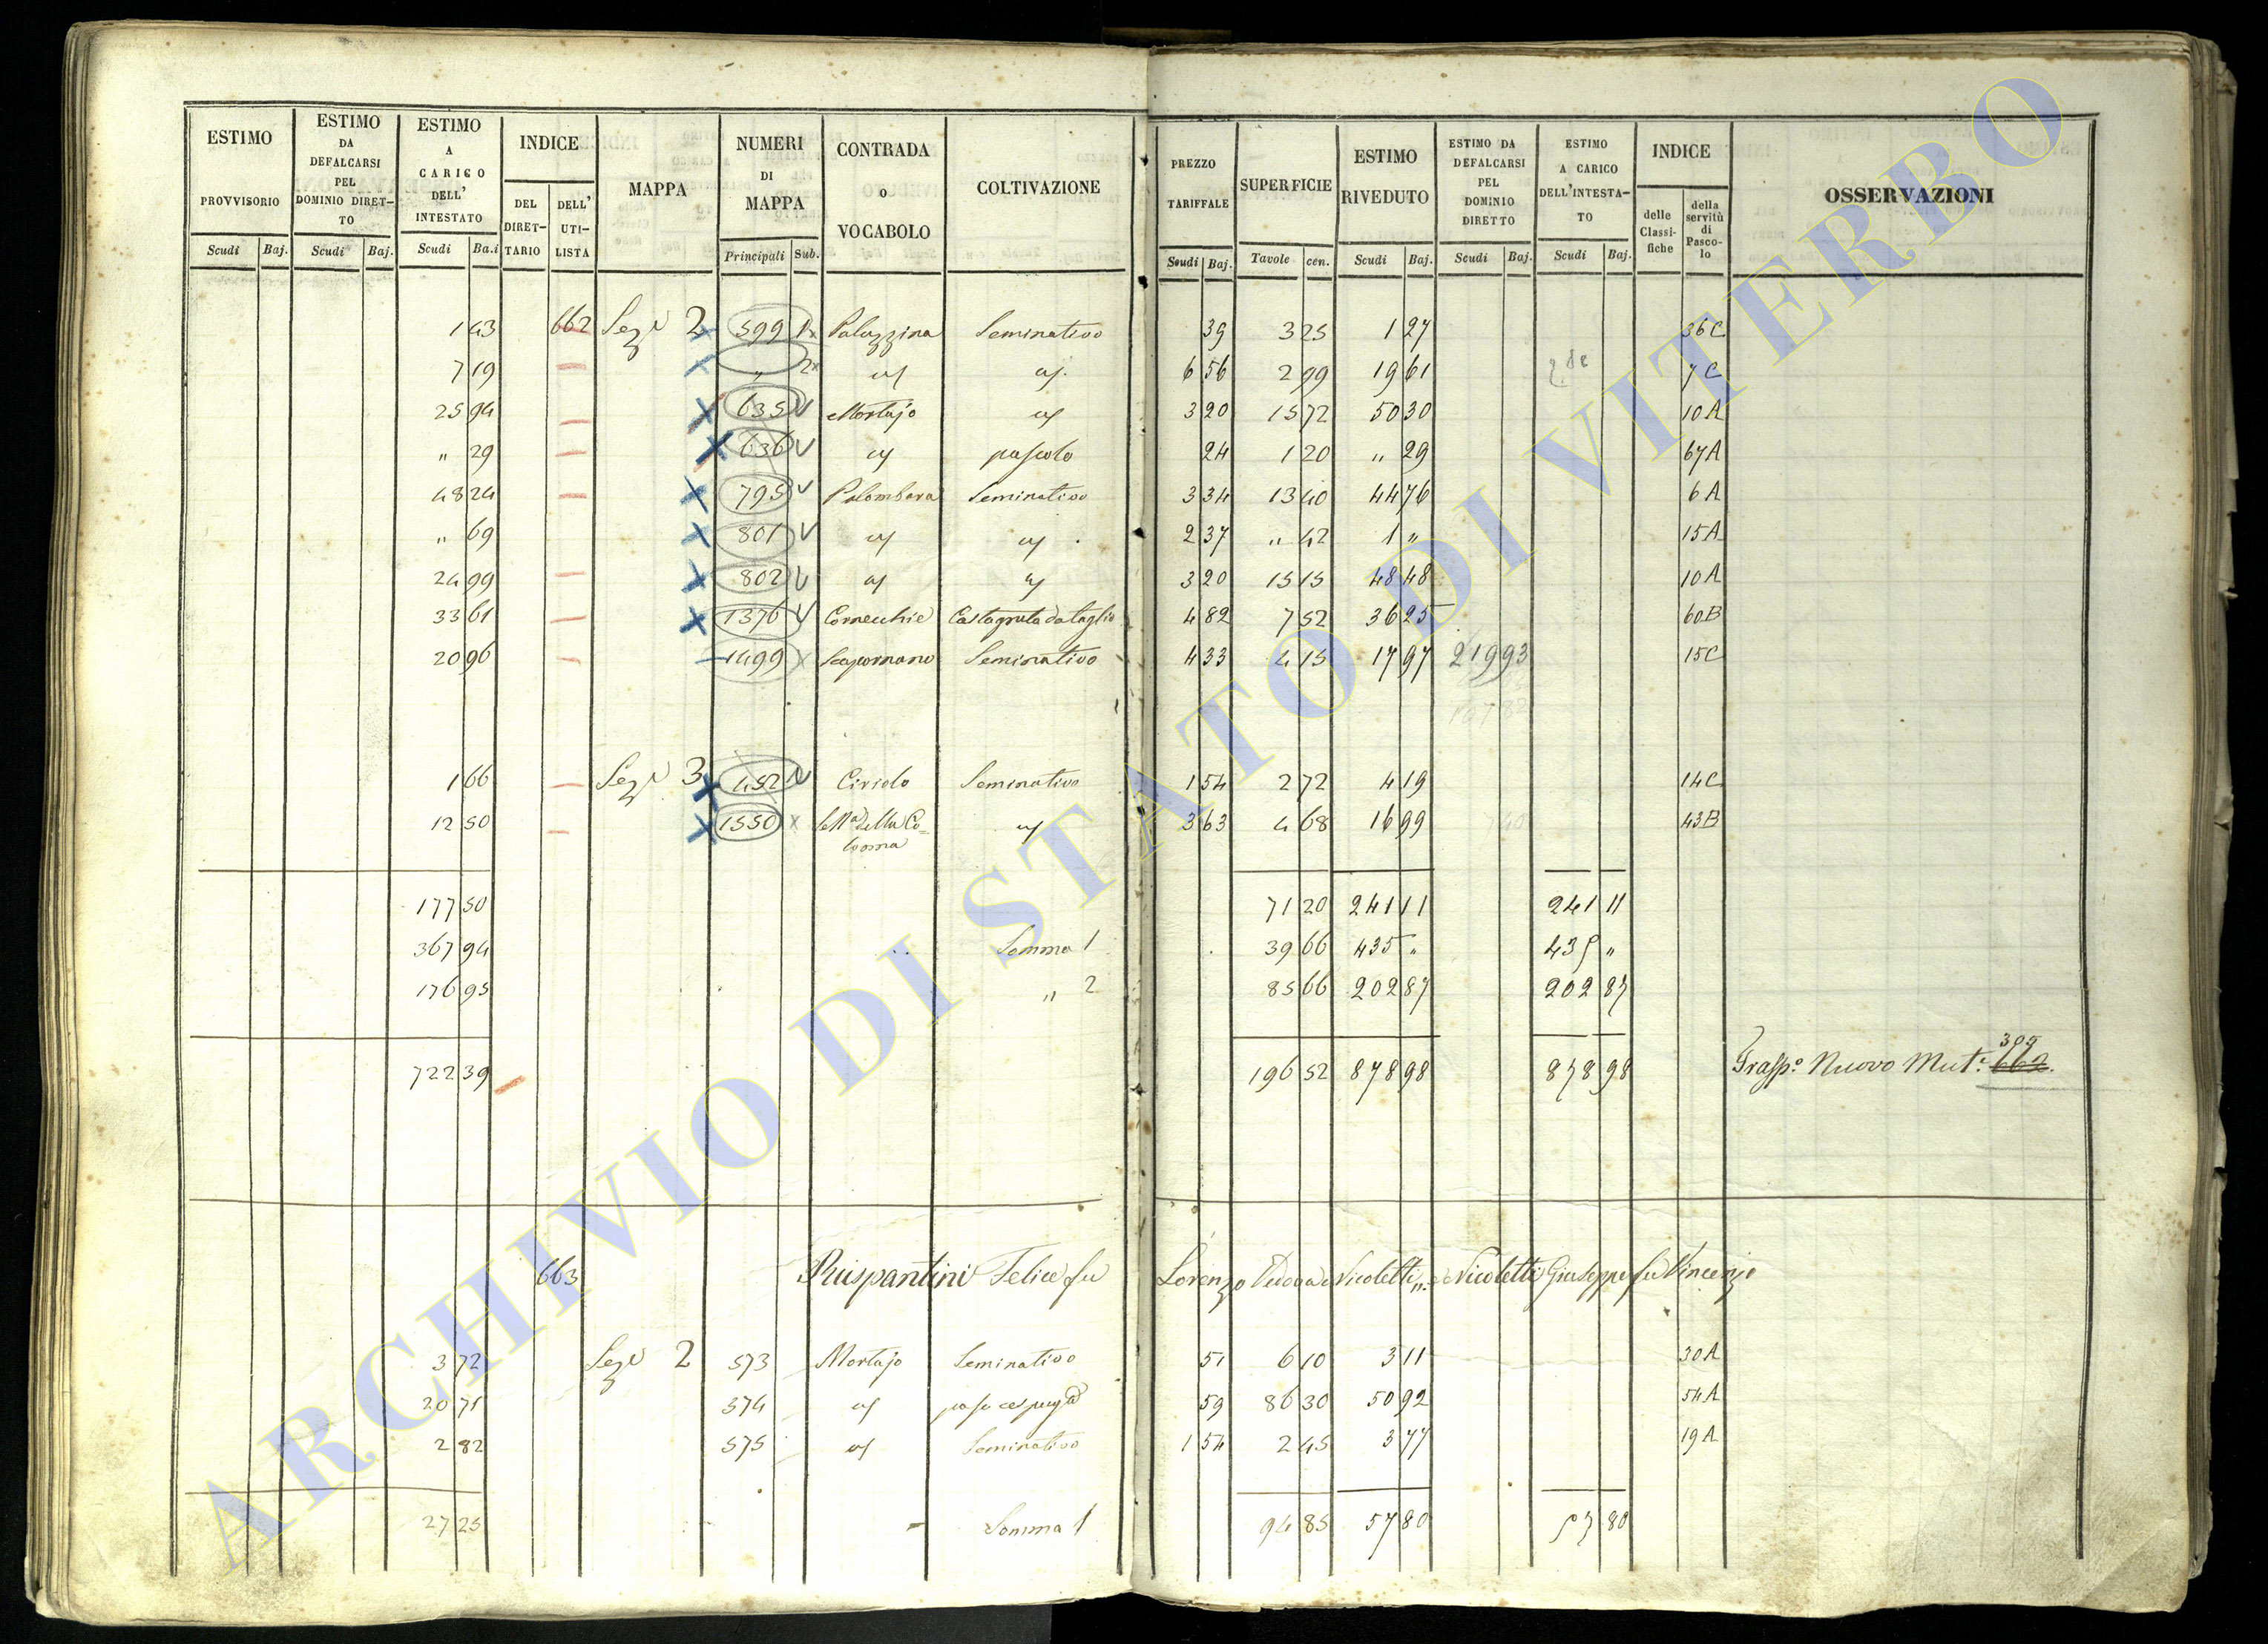 ESTIMO PROVVISORIO Scudi Baj. ESTIMO DA DEFALCARSI PEL DOMINIO DIRET-TO Scudi Baj. ESTIMO A CARICO DELL' INTESTATO Scudi Ba.i INDICE DEL DIRET-TARIO DELL' UTI-LISTA MAPPA NUMERI DI MAPPA Principali Sub. CONTRADA o VOCABOLO COLTIVAZIONE PREZZO TARIFFALE Scudi Baj. SUPERFICIE Tavole cen. ESTIMO RIVEDUTO Scudi Baj. ESTIMO DA DEFALCARSI PEL DOMINIO DIRETTO Scudi Baj. ESTIMO A CARICO DELL'INTESTA-TO Scudi Baj. INDICE delle Classi-fiche della servitù di Pasco-lo OSSERVAZIONI
1 43 662 Sez.e 2 599 1 Palazzina Seminativo 39 3 25 1 27 36 C
7 19 " 2 6 56 2 99 19 61 7 C
25 94 635 Mortajo 3 20 15 72 50 30 10 A
" 29 636 pascolo 24 1 20 " 29 67 A
48 24 795 Palombara Seminativo 3 34 13 40 44 76 6 A
" 69 801 2 37 " 42 1 " 15 A
24 99 802 3 20 15 15 48 48 10 A
33 61 1376 Cornecchie Castagneta da taglio 4 82 7 52 36 25 60 B
20 96 1499 Seminativo 4 33 4 15 17 97 21 93 15 C
1 66 Sez.e 3 452 Ciriolo Seminativo 1 54 2 72 4 19 14 C
12 50 1550 della Co=lonna 3 63 4 68 16 99 43 B
177 50 71 20 241 11 241 11
367 94 Somma 1 39 66 435 " 435 "
176 95 " 2 85 66 202 87 202 87
722 39 196 52 878 98 878 98 Trasp.o Nuovo Mut.e 662
663 Puispantini Felice fu Lorenzo Vedova Nicoletti, e Nicoletti Giuseppe fu Vincenzo
3 72 Sez.e 2 573 Mortajo Seminativo 51 6 10 3 11 30 A
20 71 574 59 86 30 50 92 54 A
2 82 575 Seminativo 1 54 2 45 3 77 19 A
27 25 Somma 1 94 85 57 80 57 80
ARCHIVIO DI STATO DI VITERBO